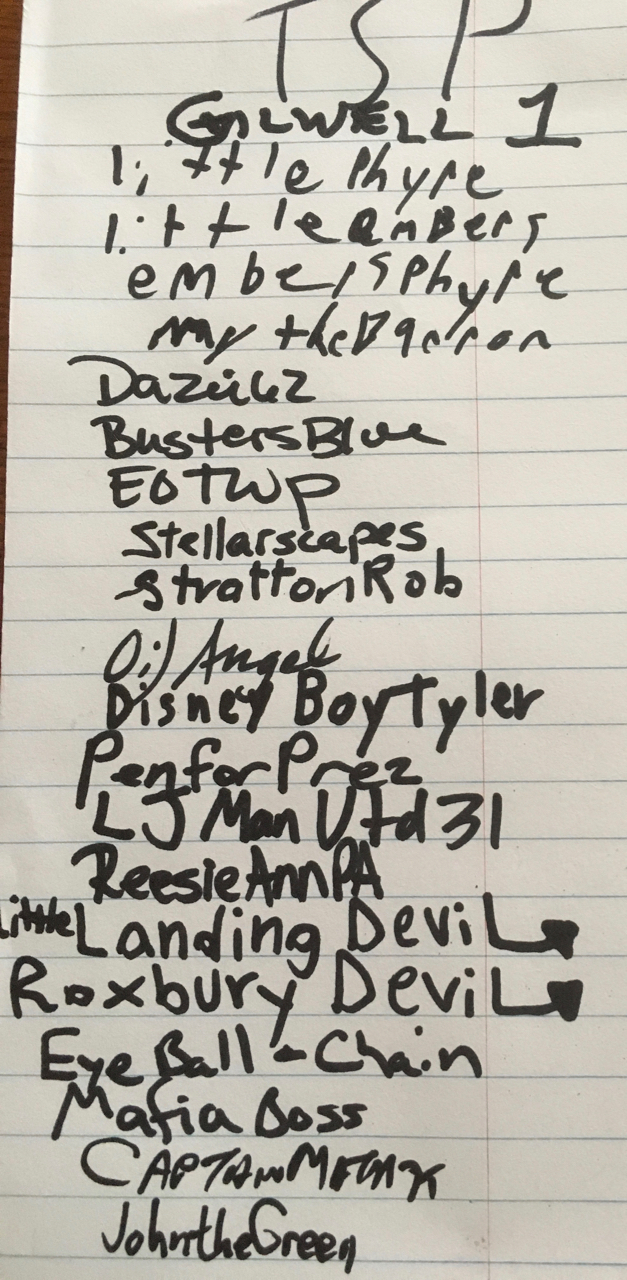 TSP
GILWELL 1
little Phyre
little embers
embersphyre
mythebarron
BustersBlue
EOTWP
Stellarscapes
StrattonRob
Oil Angel
Disney BoyTyler
PenforPrez
LJ Man Utd 31
ReesieAnnPA
Little Landing Devil
Roxbury Devil
Eye Ball-Chain
Mafia Boss
JohntheGreen